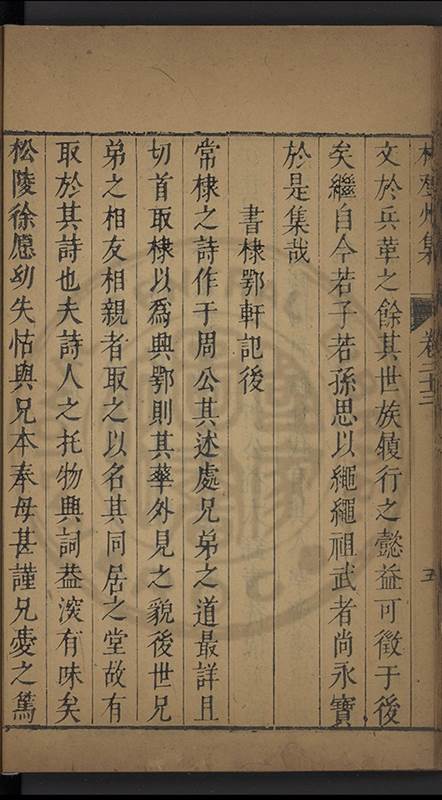 文於兵革之餘其世族履行之懿益可徵于後
矣繼自今若子若孫思以繩繩祖武者尚永寶
於是集哉
書棣鄂軒記後
常棣之詩作于周公其述處兄弟之道最詳且
切首取棣以為興鄂則其華外見之貌後世兄
弟之相友相親者取之以名其同居之堂故有
取於其詩也夫詩人之托物興詞葢深有味矣
松陵徐愿幼失怙與兄本奉母甚謹兄愛之篤
州集
卷二十三
五